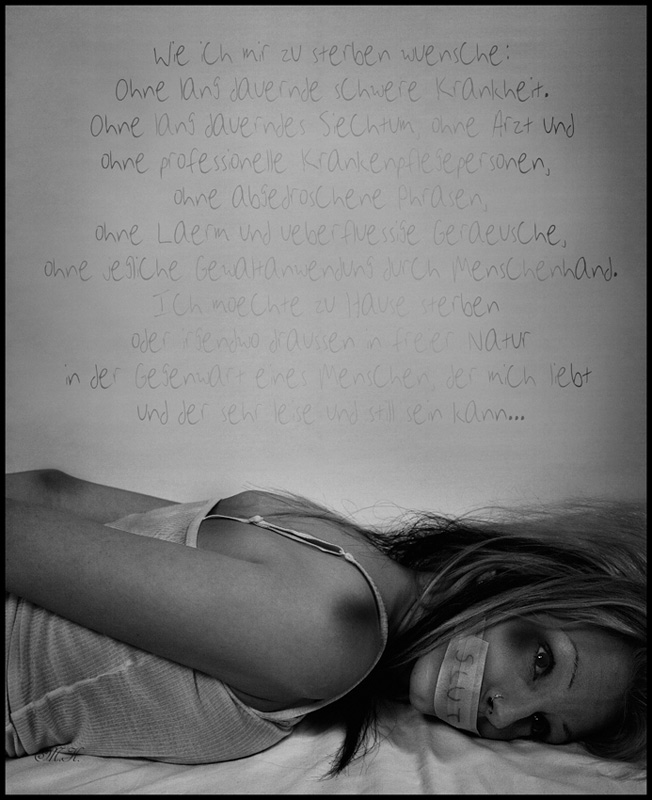 Wie ich mir zu sterben wuensche:
Ohne lang dauernde schwere Krankheit.
Ohne lang dauerndes Siechtum, ohne Arzt und
ohne professionelle Krankenpflegepersonen,
ohne abgedroschene Phrasen,
ohne Laerm und ueberfluessige Geraeusche,
ohne jegliche Gewaltanwendung durch Menschenhand.
Ich moechte zu Hause sterben
oder irgendwo draussen in freier Natur
in der Gegenwart eines Menschen, der mich liebt
und der sehr leise und still sein kann...
SLUT
M.H.